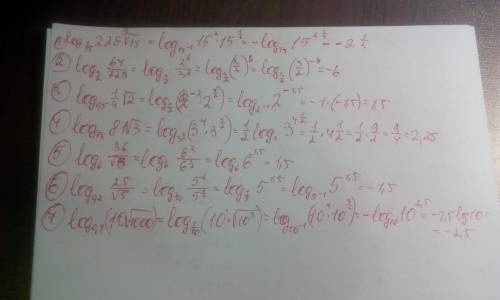 ① log_{1/15} 225∛15 = log_{15^{-1}} 15² · 15^{1/3} = -log_{15} 15^{2 1/3} = -2 1/3
② log_{3/2} 64/729 = log_{3/2} 2⁶/3⁶ = log_{3/2} (2/3)⁶ = log_{3/2} (3/2)^{-6} = -6
3 log_{0,5} 1/4 √2 = log_{1/2} (2^{-2} · 2^{1/2}) = log_{2^{-1}} 2^{-1,5} = -1 · (-1,5) = 1,5
4 3^{1/2}) = 1/2 log_3 3^{4 1/2} = 1/2 · 4 1/2 = 1/2 · 9/2 = 9/4 = 2,25
5 log_6 36/√6 = log_6 6²/6^{0,5} = log_6 6^{1,5} = 1,5
6 log_{0,2} 25/√5 = 5²/5^{0,5} = 5^{1,5} = log_{5^{-1}} 5^{1,5} = -1,5
7 log_{0,1} (10√1000) = log_{1/10} (10 · √10³) = log_{10^{-1}} (10¹ · 10^{3/2}) = -log_{10} 10^{2,5} = -2,5 log 10
= -2,5